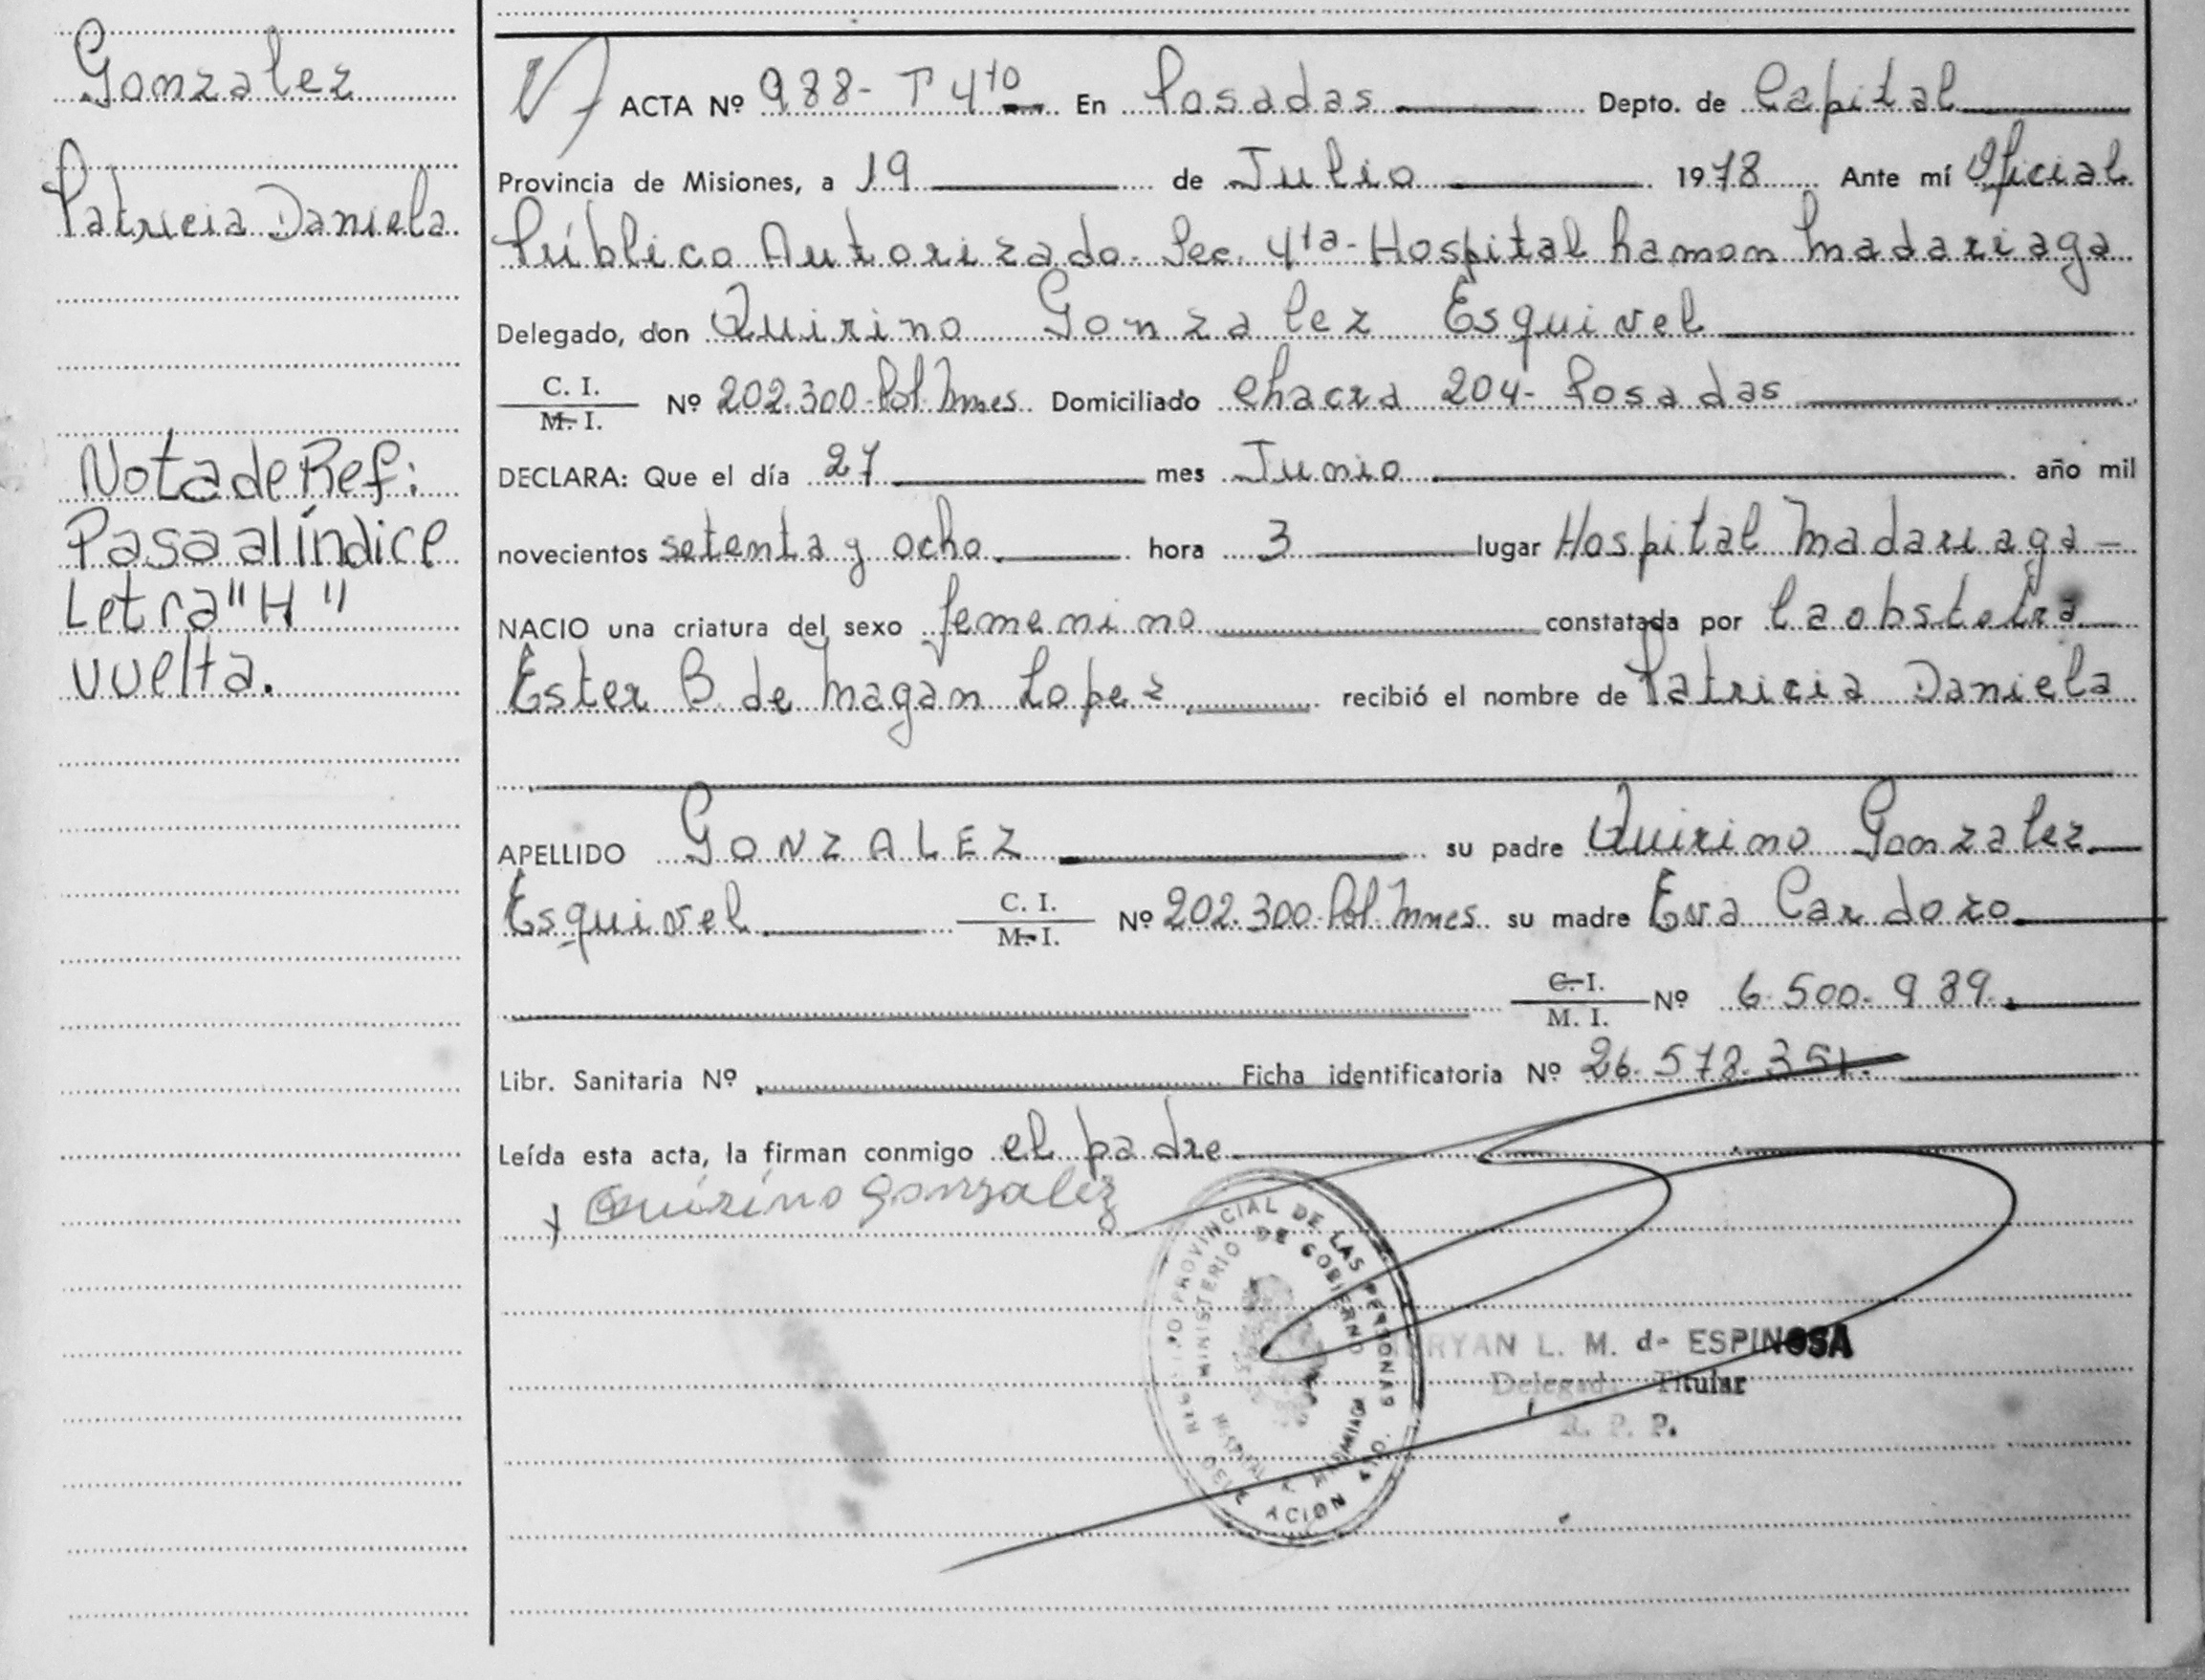 Gonzalez
Patricia Daniela
Nota de Ref:
Pasa al índice
Letra "H"
vuelta.
ACTA Nº 988- T 4to En Posadas Depto. de Capital
Provincia de Misiones, a 19 de Julio 1978 Ante mí Oficial
Público Autorizado- Sec. 4ta- Hospital Ramon Madariaga
Delegado, don Quirino Gonzalez Esquivel
C. I.
M. I. Nº 202.300-Pol. Mnes. Domiciliado Chacra 204- Posadas
DECLARA: Que el día 27 mes Junio año mil
novecientos setenta y ocho. hora 3 lugar Hospital Madariaga -
NACIO una criatura del sexo femenino constatada por la obstetra
Ester B. de Magan Lopez recibió el nombre de Patricia Daniela
APELLIDO GONZALEZ su padre Quirino Gonzalez
Esquivel C. I.
M. I. Nº 202.300-Pol. Mnes. su madre Eva Cardozo
C. I.
M. I. Nº 6.500.989.
Libr. Sanitaria Nº Ficha identificatoria Nº 26.572.351.
Leída esta acta, la firman conmigo el padre
x Quirino Gonzalez
REGISTRO PROVINCIAL DE LAS PERSONAS
MINISTERIO DE GOBIERNO
HOSPITAL R. MADARIAGA
DELEGACION 4TO.
RYAN L. M. de ESPINOSA
Delegada Titular
R. P. P.